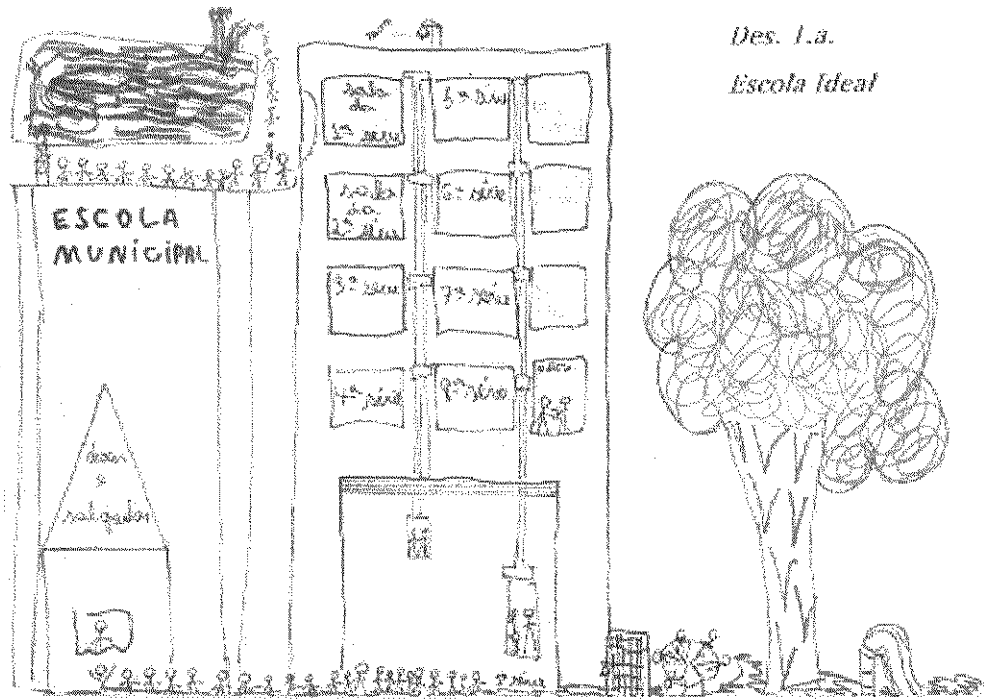 Des. 1.a.
Escola Ideal
ESCOLA
MUNICIPAL
sala
da
1ª série
5ª série
sala
da
2ª série
6ª série
3ª série
7ª série
4ª série
8ª série
doces
e
salgados